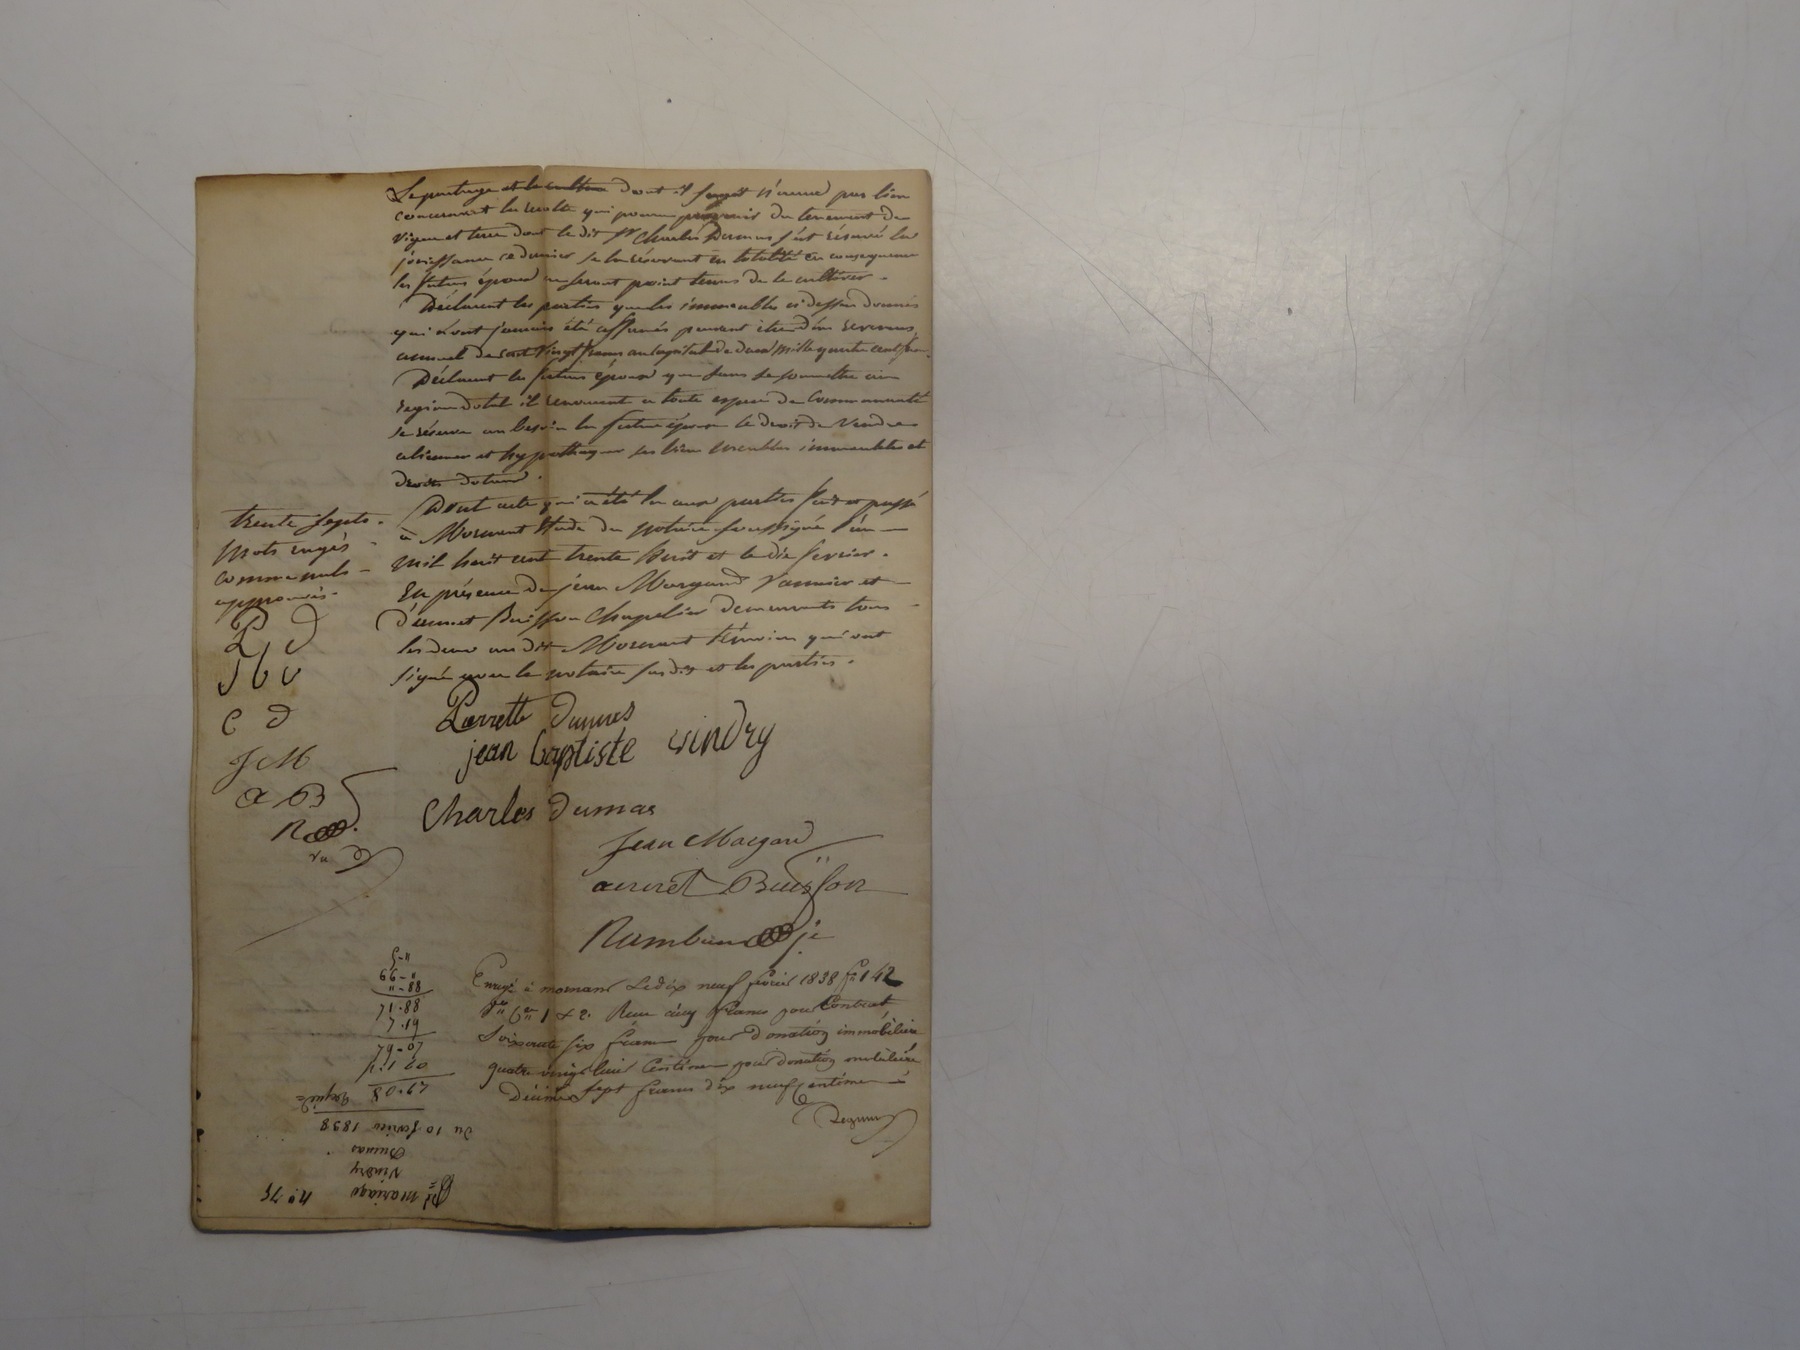 Le partage et la culture dont il sagit n'aura pas lieu
concernant la recolte qui pourra provenir du tenement de
vigne et terre dont le dit Sr Charles Dumas s'est réservé la
jouissance ce dernier se la réservant en totalité en consequence
les futurs époux ne seront point tenus de le cultiver.
Déclarent les parties que les immeubles ci dessus donnés
qui n'ont jamais été affermés peuvent être d'un revenu
annuel de cent vingt francs au capital de deux mille quatre cents
Déclarent les futurs époux que sans se soumettre au
regime dotal ils renoncent a toute espece de Communauté
se réserve au besoin la future épouse le droit de vendre
aliener et hypothequer ses biens meubles immeubles et
droits dotaux.
Dont acte qui a été lu aux parties fait et passé
à Mornant Etude du notaire soussigné l'an
mil huit cent trente huit et le dix fevrier.
En présence de jean Margand Vannier et
Buisson Chapelier demeurants tous
les deux au dit Mornant témoins qui ont
signé avec le notaire susdit et les parties.
trente sept
mots rayés
comme nuls
approuvés.
P D
J b v
C D
J M
a B
R
vu
Pierrette dumas
jean baptiste vindry
Charles dumas
Jean Margand
Buisson
Enregé à mornant Le dix neuf fevrier 1838 fo 142
Ro Ces 1 & 2. Recu cinq francs pour Contrat
Soixante six francs pour donation immobiliere
quatre vingt huit Centimes pour donation mobiliere
Décime sept francs dix neuf centimes
"-5
"-66
"-88
71.88
7.19
79-07
du 10 fevrier 1838
Dumas
Vindry
mariage
no 75